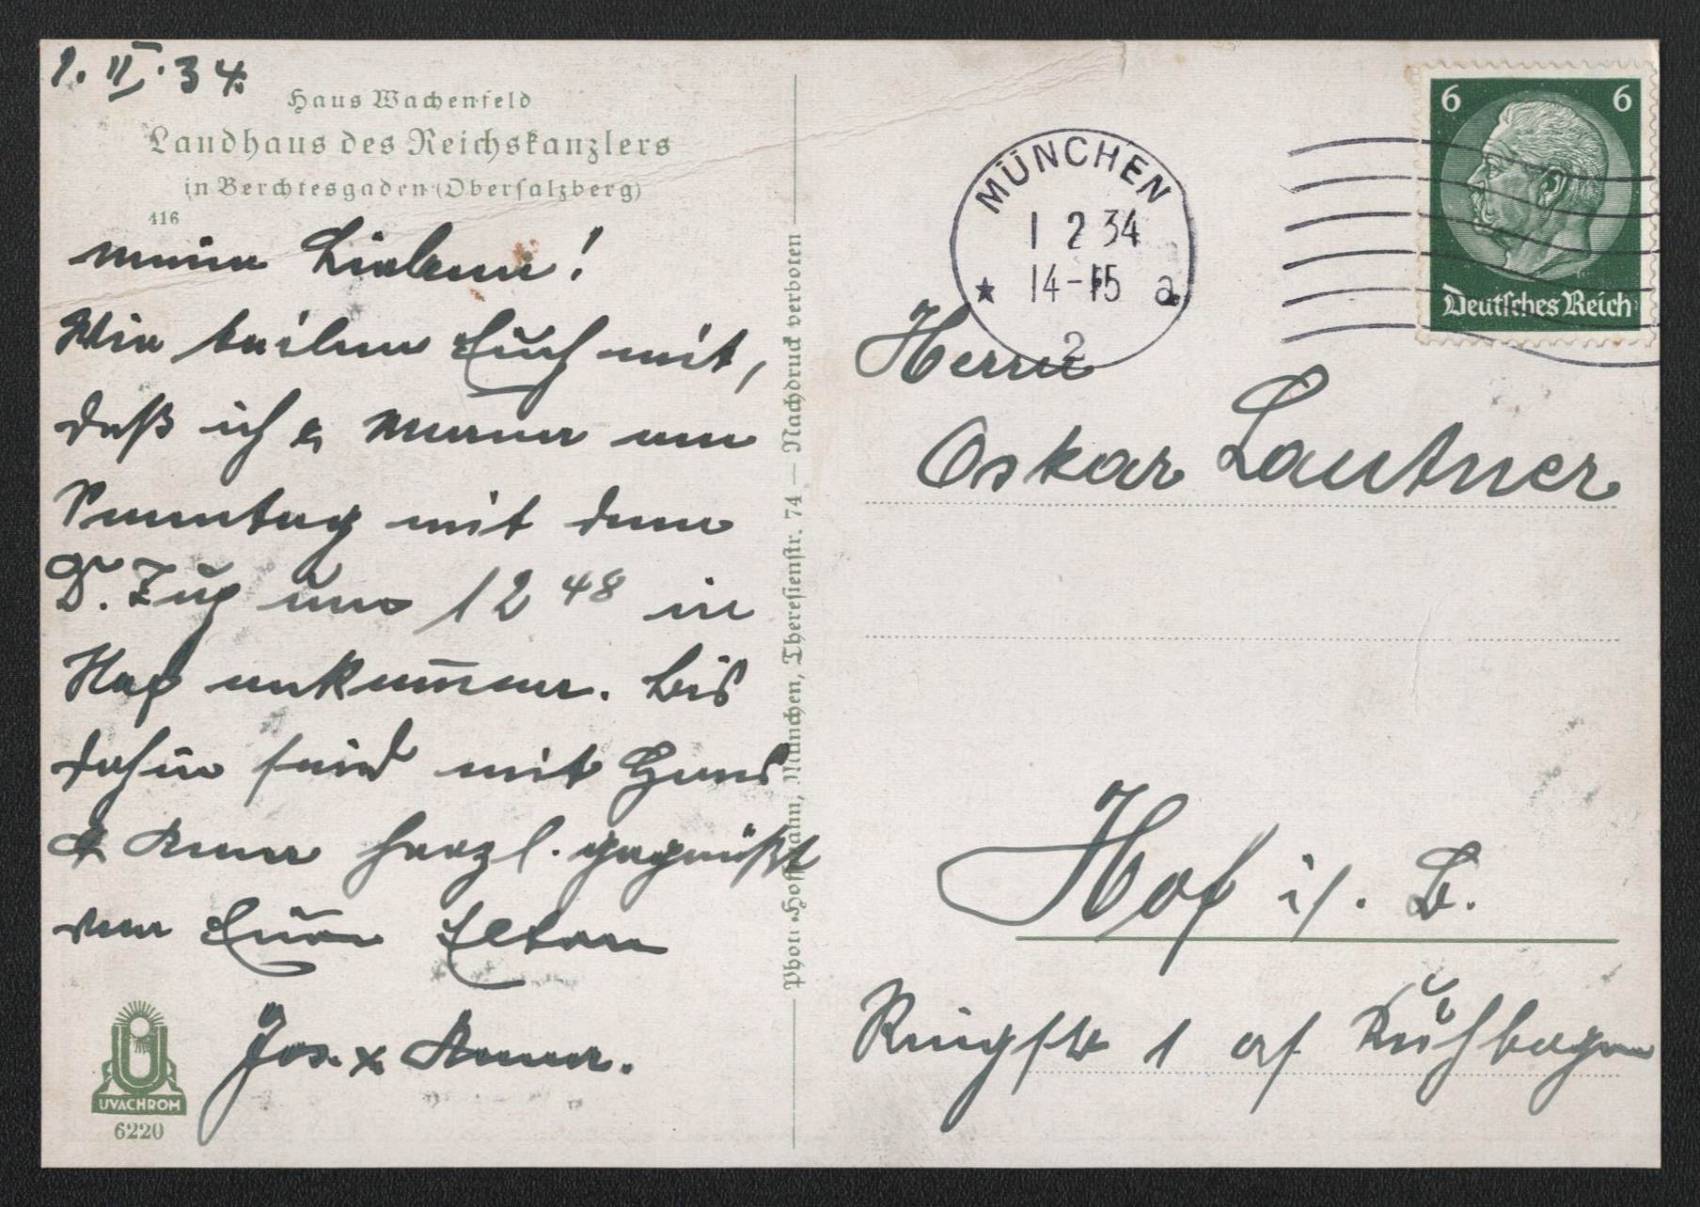 1. II. 34.
Haus Wachenfeld
Landhaus des Reichskanzlers
in Berchtesgaden (Obersalzberg)
416
Meine Lieben!
Wir teilen Euch mit,
daß ich & Mama am
Sonntag mit dem
D. Zug um 12 48 in
Hof ankom̄men. Bis
dahin seid mit Hans
& Anna herzl. gegrüßt
von Euren Eltern
Jos. & Anna.
UVACHROM
6220
Photo Hoffmann, München, Theresienstr. 74 — Nachdruck verboten
MÜNCHEN
1 2 34
14-15 a
2
6 6
Deutsches Reich
Herrn
Oskar Lautner
Hof i/. B.
Ringstr 1